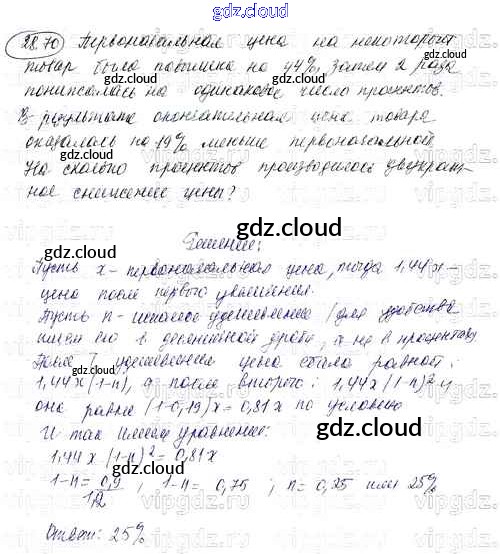 gdz.cloud
28.70 Первоначальная цена на некоторый
товар была повышена на 44%, затем 2 раза
понижалась на одинаковое число процентов.
В результате окончательная цена товара
оказалась на 19% меньше первоначальной.
На сколько процентов производилось двукрат-
ное снижение цены?
Решение:
Пусть x - первоначальная цена, тогда 1,44x -
цена после первого увеличения.
Пусть n - удешевление (для удобства
его в десятичной дроби, а не в процентах)
После I удешевления цена стала равной:
1,44x(1-n), а после второго: 1,44x(1-n)² и
она равна (1-0,19)x = 0,81x по условию
Итак имеем уравнение:
1,44x(1-n)² = 0,81x
1-n = 0,9/1,2 ; 1-n = 0,75 ; n = 0,25 или 25%
Ответ: 25%